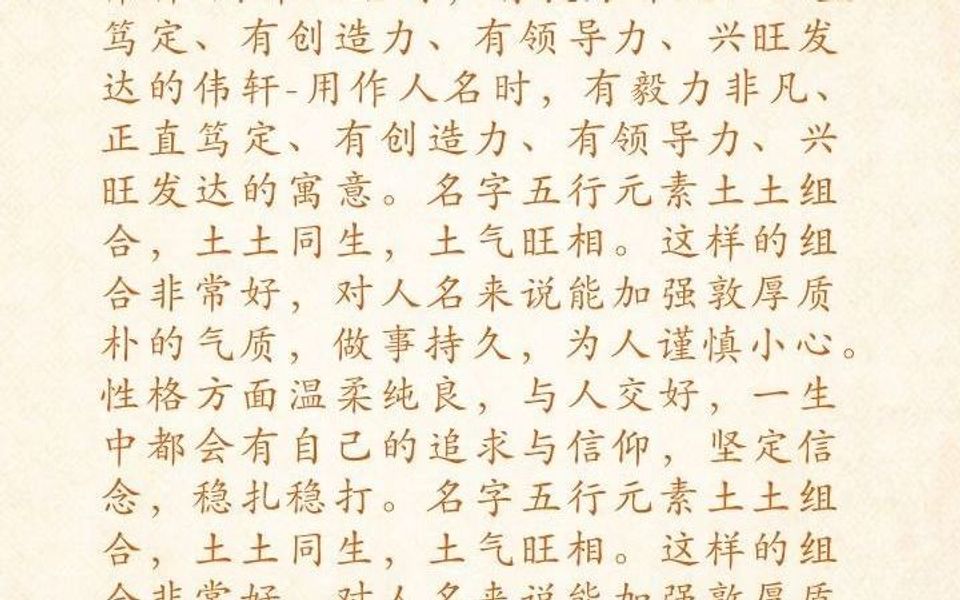 笃定、有创造力、有领导力、兴旺发
达的伟轩-用作人名时，有毅力非凡、
正直笃定、有创造力、有领导力、兴
旺发达的寓意。名字五行元素土土组
合，土土同生，土气旺相。这样的组
合非常好，对人名来说能加强敦厚质
朴的气质，做事持久，为人谨慎小心。
性格方面温柔纯良，与人交好，一生
中都会有自己的追求与信仰，坚定信
念，稳扎稳打。名字五行元素土土组
合，土土同生，土气旺相。这样的组
合非常好，对人名来说能加强敦厚质